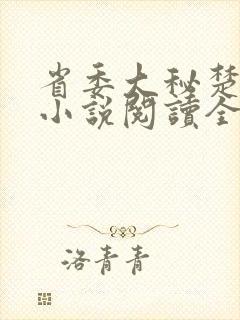 省委大秘楚
小说閱讀全
洛青青